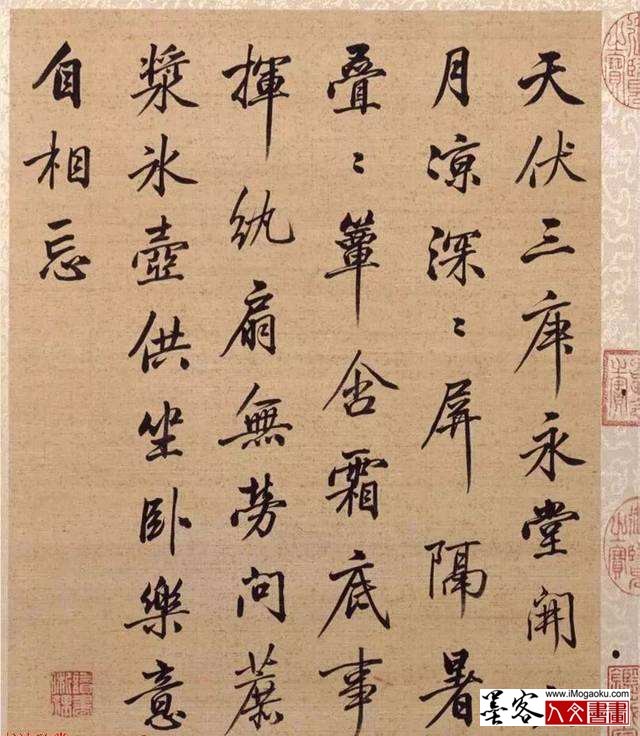 天伏三庚永堂開
月涼深〻屏隔暑
疊〻簟含霜底事
揮紈扇無勞問蔗
漿冰壺供坐臥樂意
自相忘
墨客
www.iMogaoku.com
人文書畫